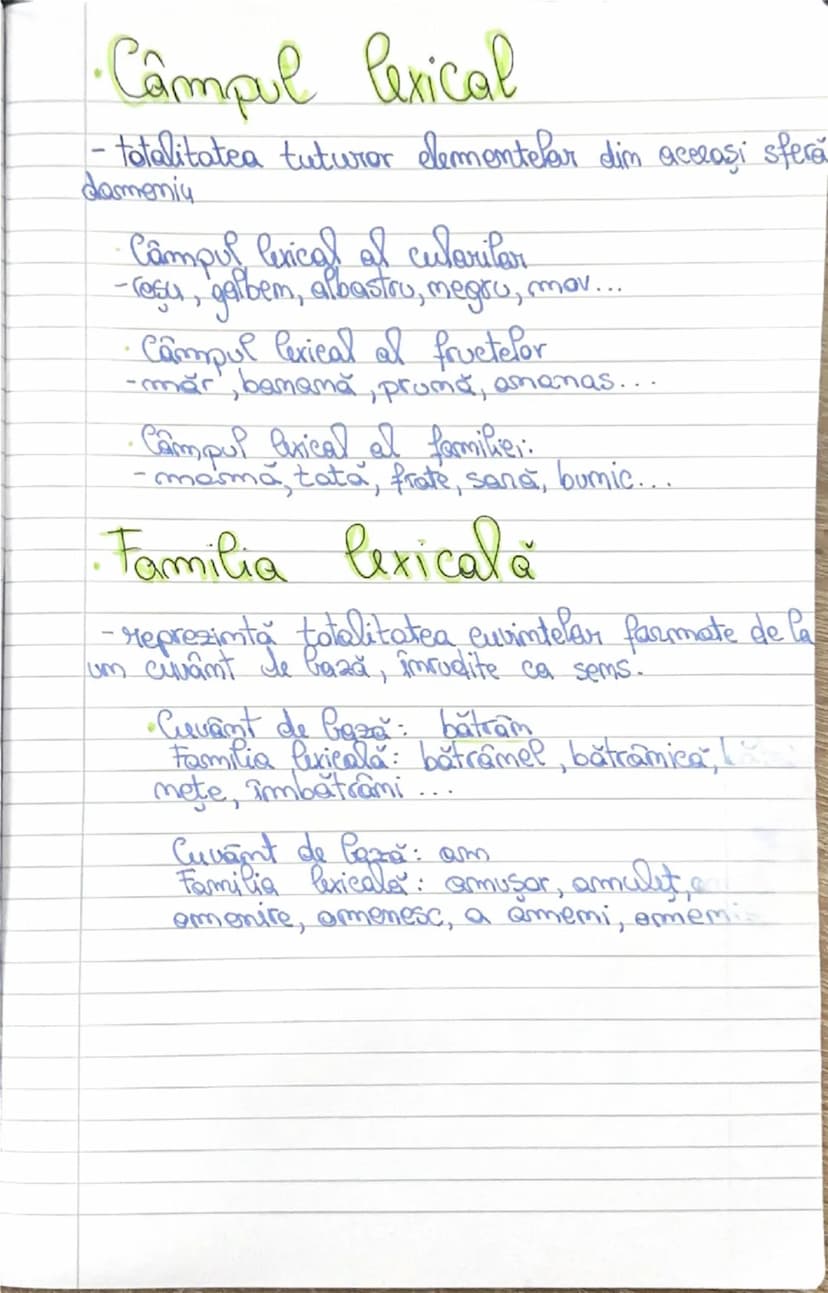 Câmpul lexical
- totalitatea tuturor elementelor din aceeași sferă
domeniu
Câmpul lexical al culorilor
- roșu, galben, albastru, negru, mov...
Câmpul lexical al fructelor
- măr, banană, prună, ananas...
Câmpul lexical al familiei:
- mamă, tată, frate, soră, bunic...
Familia lexicală
- reprezintă totalitatea cuvintelor formate de la
un cuvânt de bază, înrudite ca sens.
Cuvânt de bază: bătrân
Familia lexicală: bătrânel, bătrânică,
nețe, îmbătrâni ...
Cuvânt de bază: om
Familia lexicală: omușor, omuleț,
omenire, omenesc, a omeni,